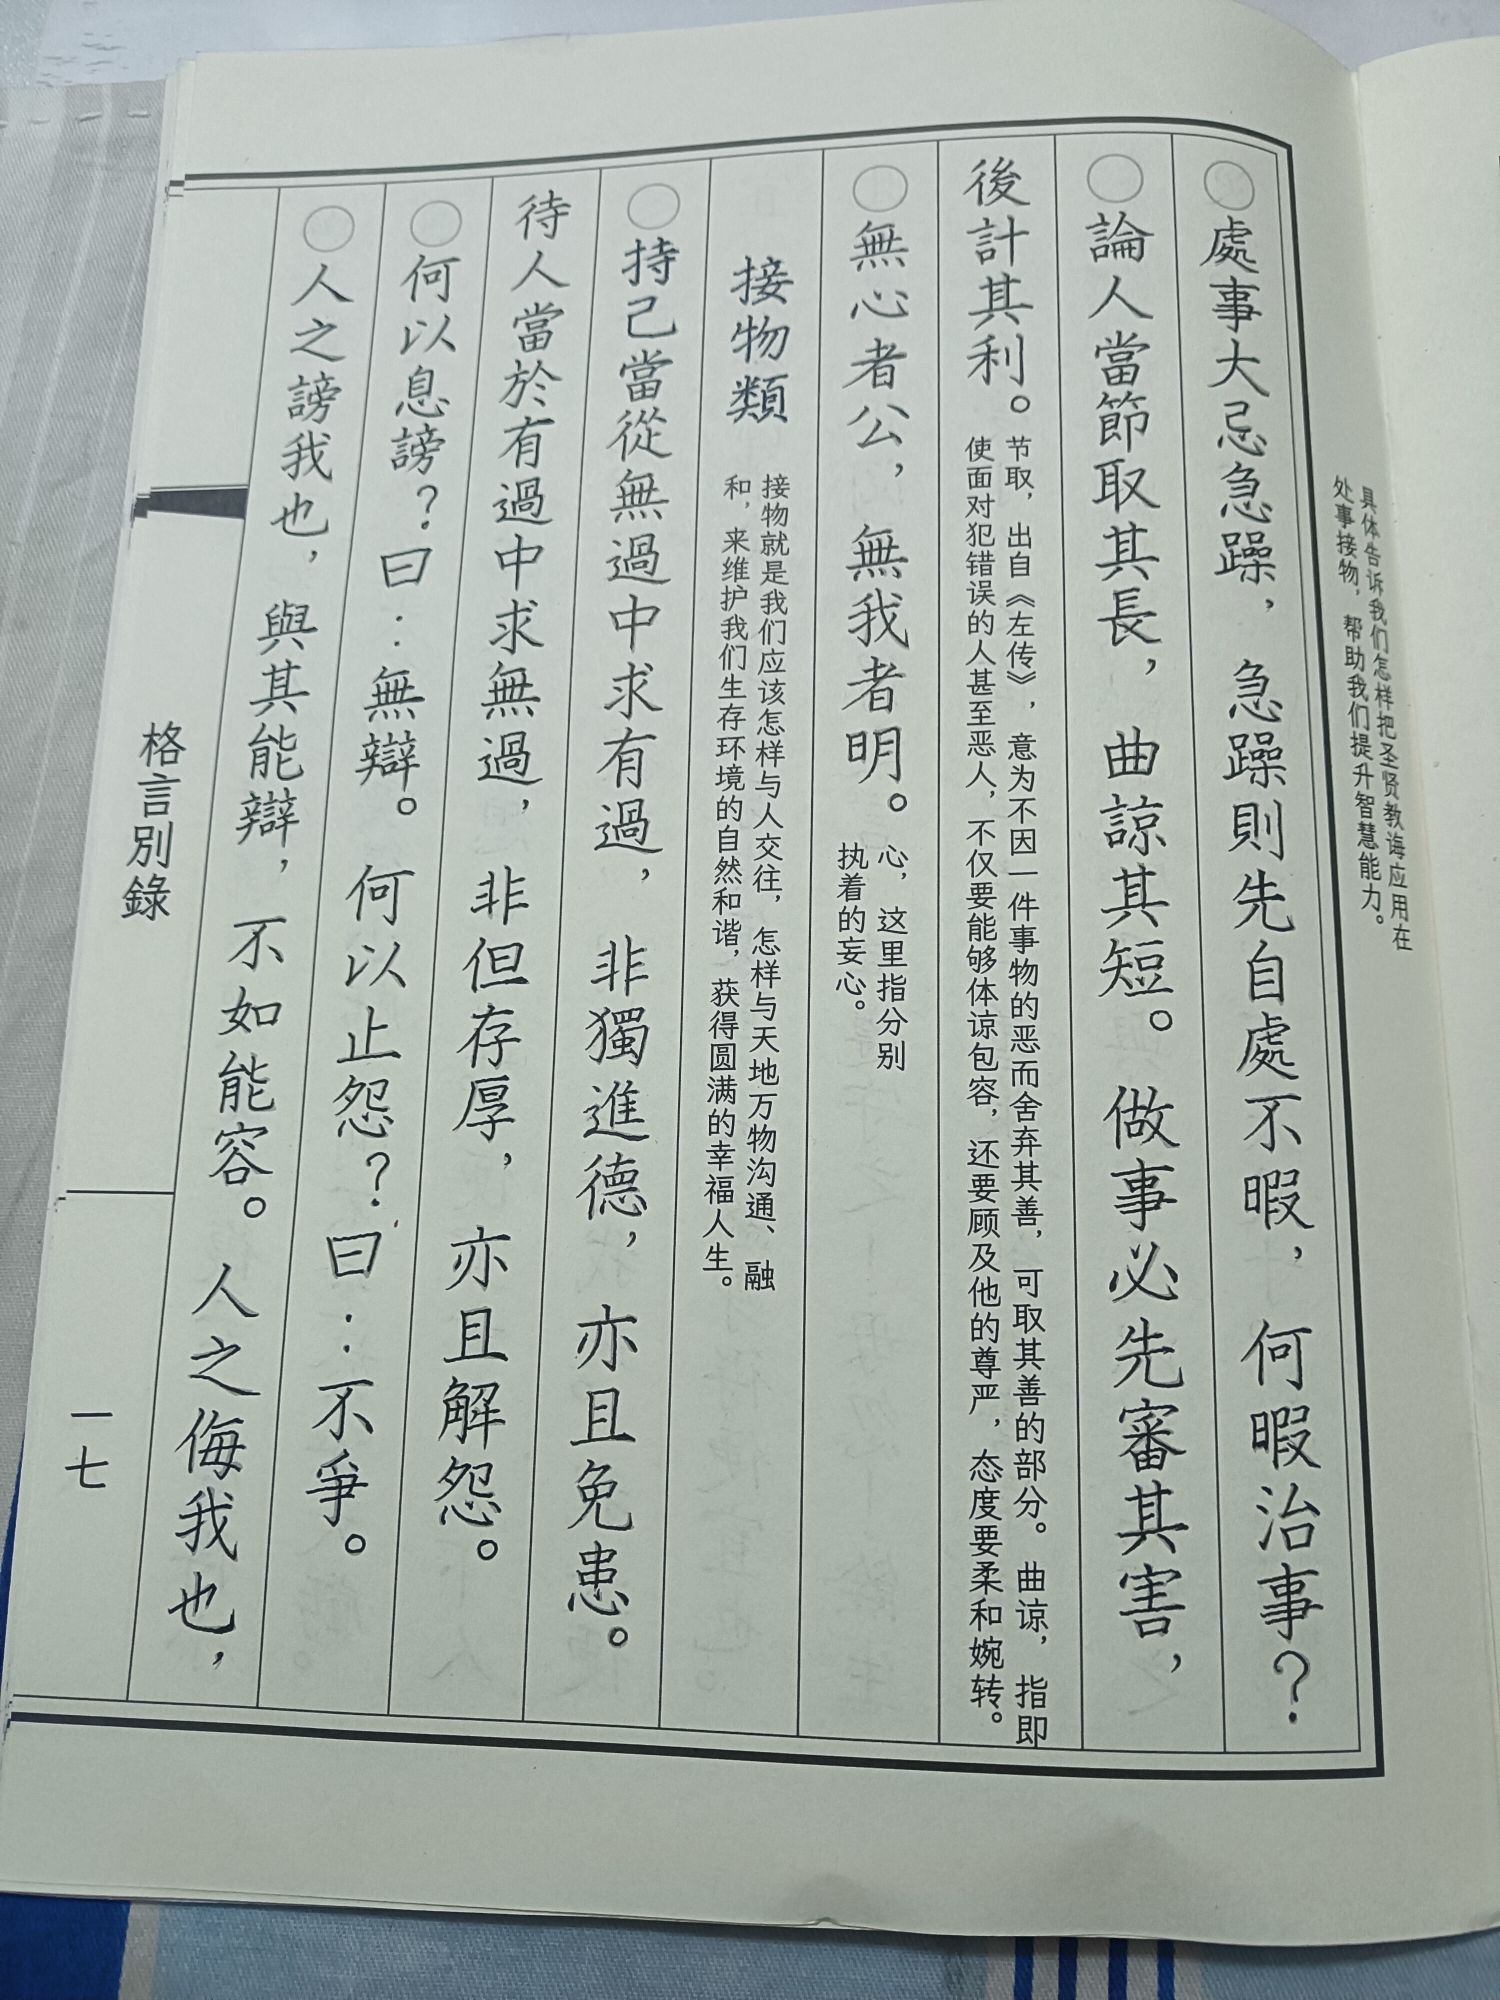 具体告诉我们怎样把圣贤教诲应用在
处事接物，帮助我们提升智慧能力。
○處事大忌急躁，急躁則先自處不暇，何暇治事？
○論人當節取其長，曲諒其短。做事必先審其害，
後計其利。
节取，出自《左传》，意为不因一件事物的恶而舍弃其善，可取其善的部分。曲谅，指即
使面对犯错误的人甚至恶人，不仅要能够体谅包容，还要顾及他的尊严，态度要柔和婉转。
○無心者公，無我者明。
心，这里指分别
执着的妄心。
接物類
接物就是我们应该怎样与人交往，怎样与天地万物沟通、融
和，来维护我们生存环境的自然和谐，获得圆满的幸福人生。
○持己當從無過中求有過，非獨進德，亦且免患。
待人當於有過中求無過，非但存厚，亦且解怨。
○何以息謗？曰：無辯。何以止怨？曰：不爭。
○人之謗我也，與其能辯，不如能容。人之侮我也，
格言別錄
一七